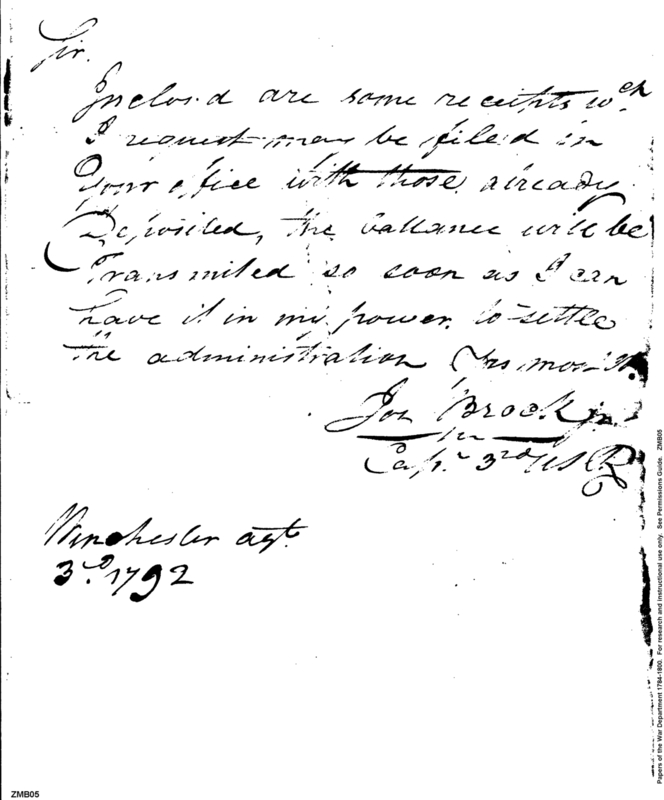 Sir.
Inclosd are some receipts wch.
I request may be filed in
Your office with those already
Deposited, the ballance will be
Transmited so soon as I can
have it in my power to settle
the administration Yrs most
Jos Brock jnr
Capn 3rd US R
Winchester agt.
3d. 1792
Papers of the War Department 1784-1800. For research and instructional use only. See Permissions Guide. ZMB05
ZMB05